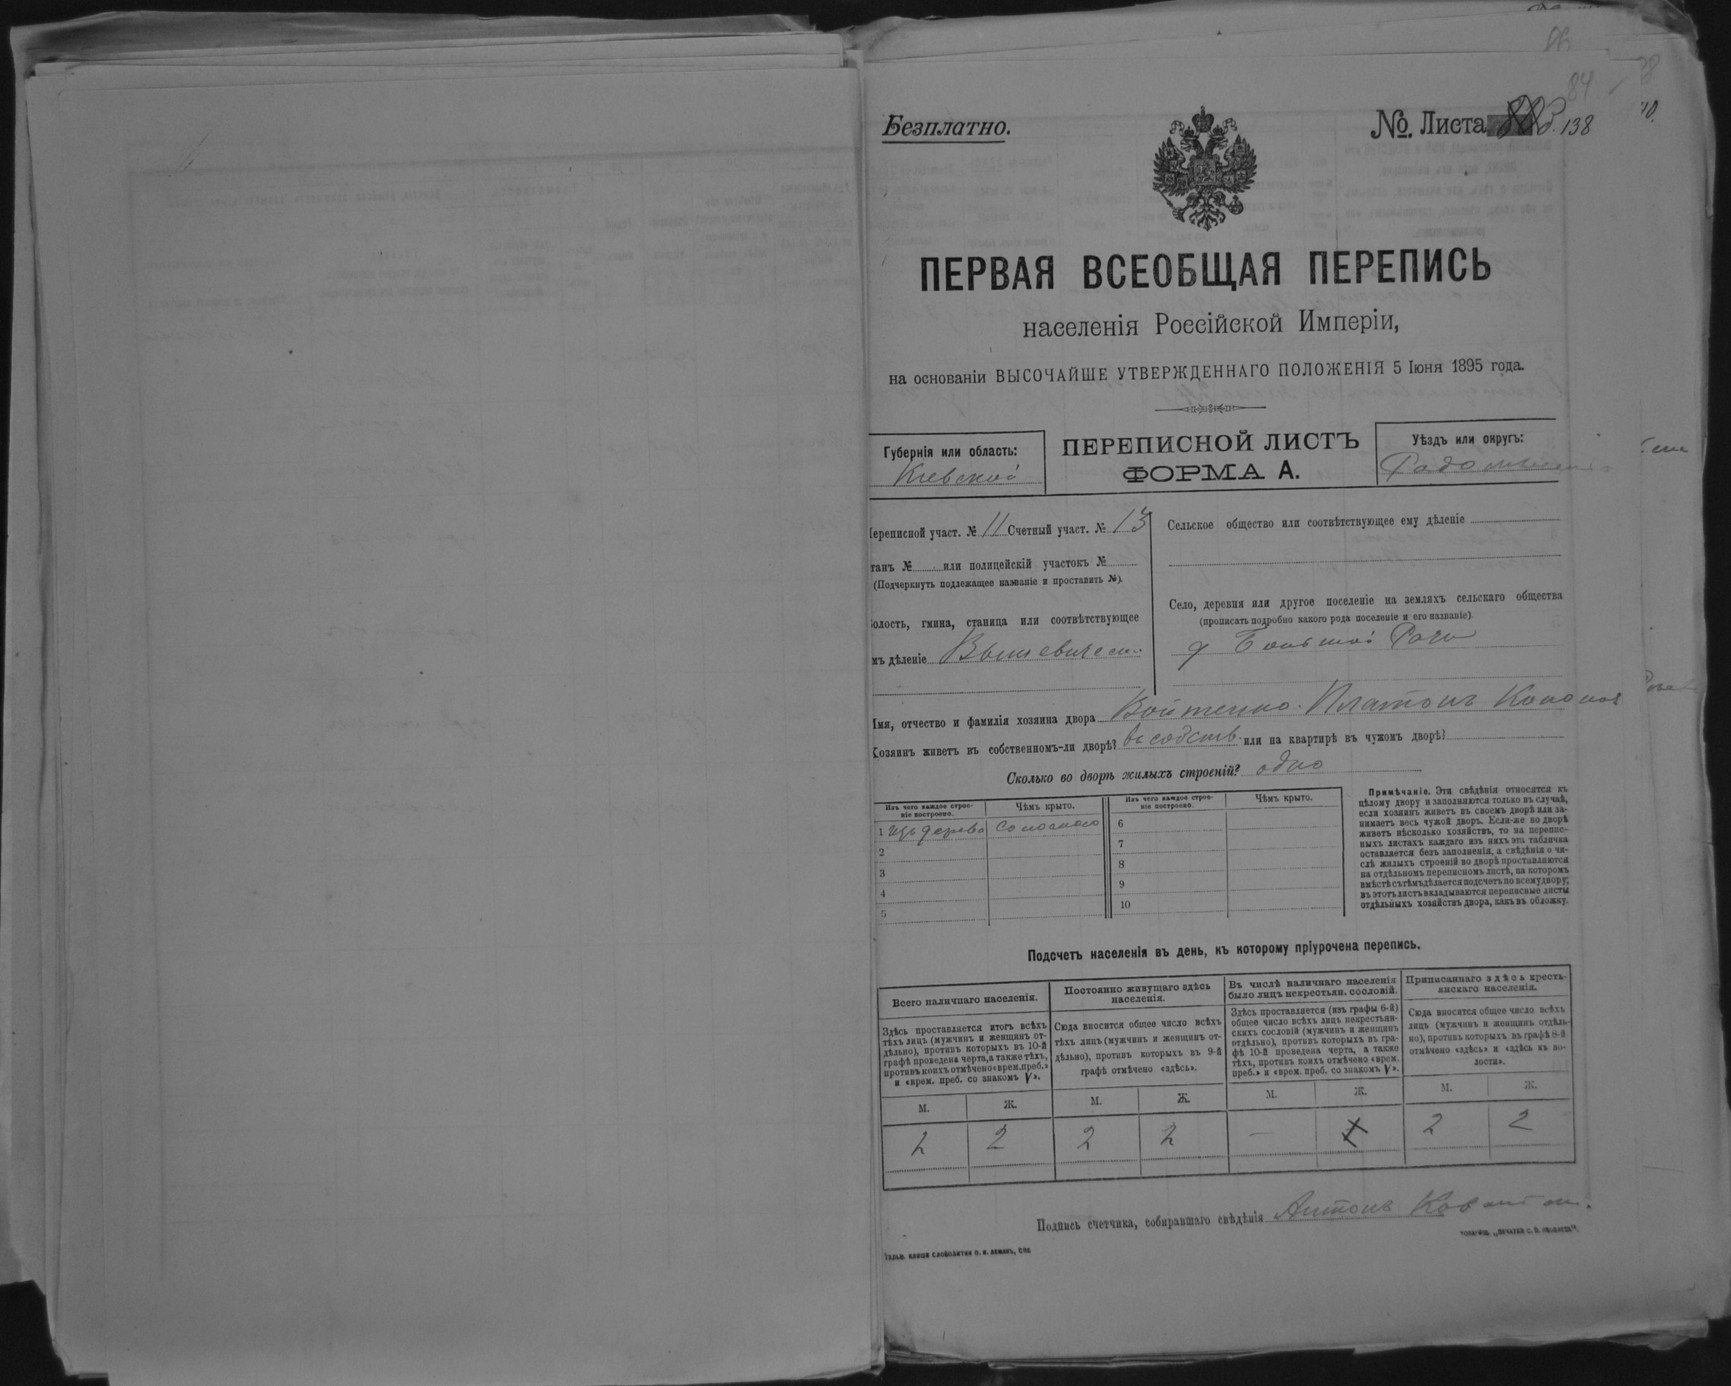 84
Безплатно.
№ Листа 138
ПЕРВАЯ ВСЕОБЩАЯ ПЕРЕПИСЬ
населенія Россійской Имперіи,
на основаніи ВЫСОЧАЙШЕ УТВЕРЖДЕННАГО ПОЛОЖЕНІЯ 5 Іюня 1895 года.
Губернія или область:
Кіевской
ПЕРЕПИСНОЙ ЛИСТЪ
ФОРМА А.
Уѣздъ или округъ:
ереписной участ. № 11 Счетный участ. № 13
танъ № или полицейскій участокъ №
(Подчеркнуть подлежащее названіе и проставить №).
олость, гмина, станица или соотвѣтствующее
мъ дѣленіе
Сельское общество или соотвѣтствующее ему дѣленіе
Село, деревня или другое поселеніе на земляхъ сельскаго общества
(прописать подробно какого рода поселеніе и его названіе).
Имя, отчество и фамилія хозяина двора Войтенко Платонъ
Хозяинъ живетъ въ собственномъ-ли дворѣ? въ собств. или на квартирѣ въ чужомъ дворѣ?
Сколько во дворѣ жилыхъ строеній? одно
Изъ чего каждое строе-
ніе построено.
Чѣмъ крыто.
Изъ чего каждое строе-
ніе построено.
Чѣмъ крыто.
1 изъ дерева соломою
2
3
4
5
6
7
8
9
10
Примѣчаніе. Эти свѣдѣнія относятся къ
цѣлому двору и заполняются только въ случаѣ,
если хозяинъ живетъ въ своемъ дворѣ или за-
нимаетъ весь чужой дворъ. Если-же во дворѣ
живетъ нѣсколько хозяйствъ, то на перепис-
ныхъ листахъ каждаго изъ нихъ эта табличка
оставляется безъ заполненія, а свѣдѣнія о чи-
слѣ жилыхъ строеній во дворѣ проставляются
на отдѣльномъ переписномъ листѣ, на которомъ
вмѣстѣ съ тѣмъ дѣлается подсчетъ по всему двору;
въ этотъ листъ вкладываются переписные листы
отдѣльныхъ хозяйствъ двора, какъ въ обложку.
Подсчетъ населенія въ день, къ которому пріурочена перепись.
Всего наличнаго населенія.
Здѣсь проставляется итогъ всѣхъ
тѣхъ лицъ (мужчинъ и женщинъ от-
дѣльно), противъ которыхъ въ 10-й
графѣ проведена черта, а также тѣхъ,
противъ коихъ отмѣчено «врем. преб.»
и «врем. преб. со знакомъ V».
Постоянно живущаго здѣсь
населенія.
Сюда вносится общее число всѣхъ
тѣхъ лицъ (мужчинъ и женщинъ от-
дѣльно), противъ которыхъ въ 9-й
графѣ отмѣчено «здѣсь».
Въ числѣ наличнаго населенія
было лицъ некрестьян. сословій.
Здѣсь проставляется (изъ графы 6-й)
общее число всѣхъ лицъ некрестьян-
скихъ сословій (мужчинъ и женщинъ
отдѣльно), противъ которыхъ въ гра-
фѣ 10-й проведена черта, а также
тѣхъ, противъ коихъ отмѣчено «врем.
преб.» и «врем. преб. со знакомъ V».
Приписаннаго здѣсь кресть-
янскаго населенія.
Сюда вносится общее число всѣхъ
лицъ (мужчинъ и женщинъ отдѣль-
но), противъ которыхъ въ графѣ 8-й
отмѣчено «здѣсь» и «здѣсь въ во-
лости».
М. Ж. М. Ж. М. Ж. М. Ж.
2 2 2 2 — 2 2
Подпись счетчика, собиравшаго свѣдѣнія Антонъ